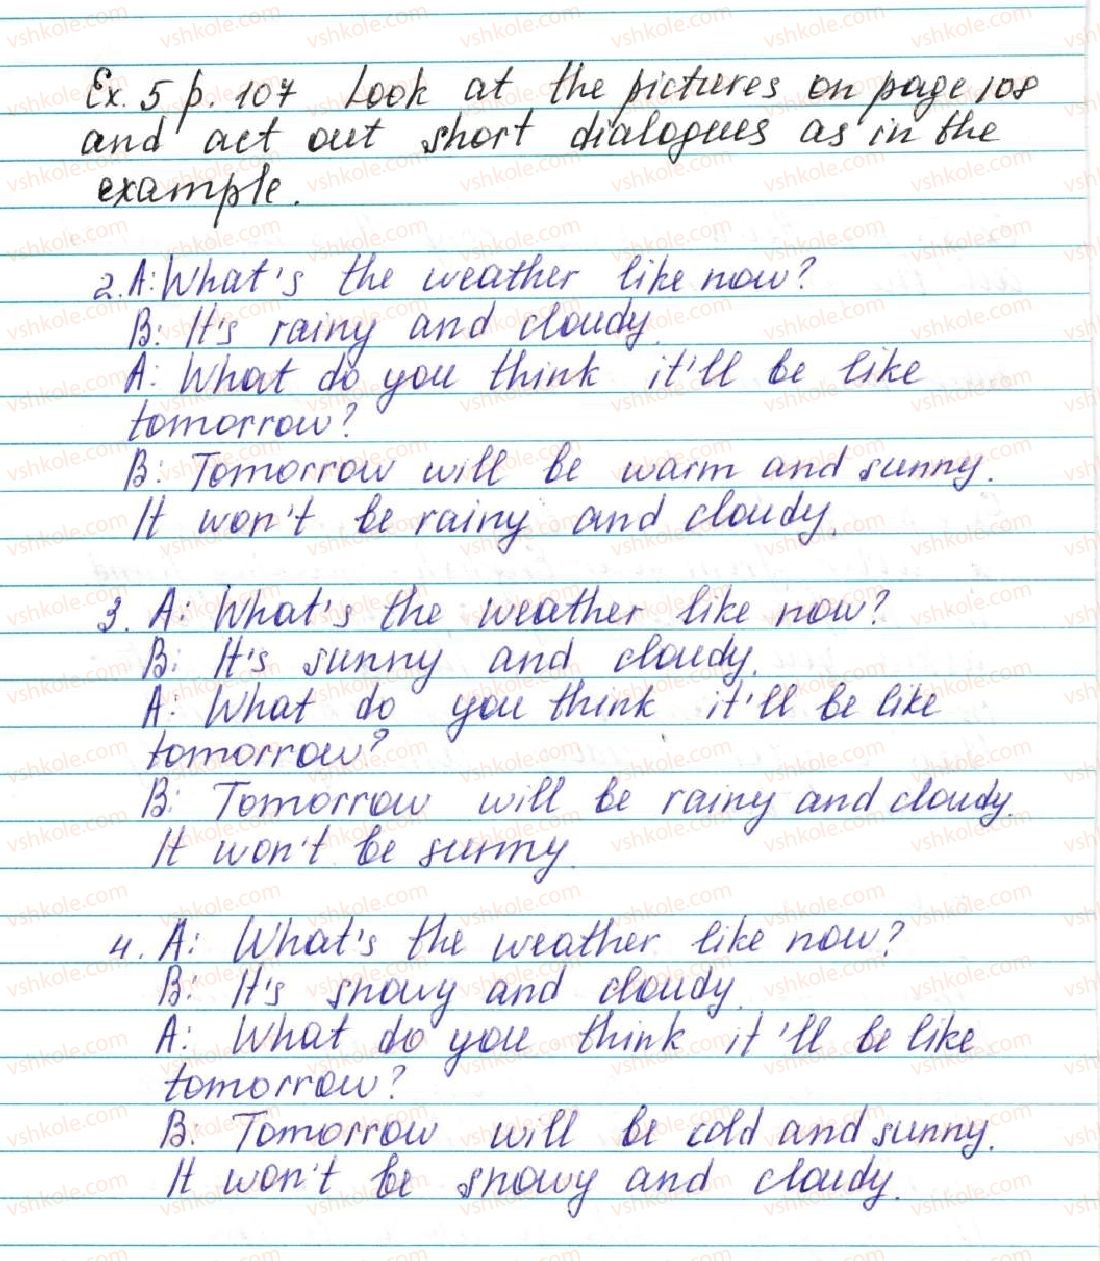 Ex. 5 p. 107 Look at the pictures on page 108
and act out short dialogues as in the
example.
2. A: What's the weather like now?
B: It's rainy and cloudy.
A: What do you think it'll be like
tomorrow?
B: Tomorrow will be warm and sunny.
It won't be rainy and cloudy.
3. A: What's the weather like now?
B: It's sunny and cloudy.
A: What do you think it'll be like
tomorrow?
B: Tomorrow will be rainy and cloudy.
It won't be sunny.
4. A: What's the weather like now?
B: It's snowy and cloudy.
A: What do you think it'll be like
tomorrow?
B: Tomorrow will be cold and sunny.
It won't be snowy and cloudy.